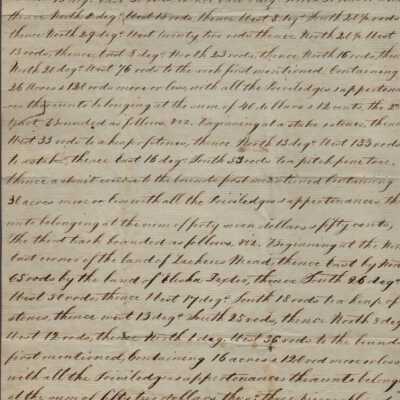 thence North 2 deg.s West 13 rods, thence West 8 deg.s South 21½ rods
thence North 29 deg.s West twenty two rods thence North 21½ West
13 rods, thence East 8 deg.s North 23 rods, thence North 16 rods, thence
North 21 deg.s West 76 rods to the rock first mentioned. Containing
26 Acres & 120 rods more or less, with all the Priviledges & appertenan
ces thereunto belonging at the sum of 40 dollars & 12 cents, the 2d
bounded as follows. viz. Begining at a stake & stones, thence
West 33 rods to a heap of stones, thence North 13 deg.s West 133 rods
to a stake, thence East 16 deg.s South 53 rods to a pitch pine tree.
thence a strait course to the bounds first mentioned Containing
31 acres more or less with all the Priviledges & appertenances there
unto belonging at the sum of forty seven dollars & fifty cents,
the third bounded as follows. viz. Begining at the North
East corner of the land of Zachens Mead, thence East by North
65 rods by the land of Elisha thence South 26 deg.s
West 31 rods, thence West 17 deg.s South 18 rods to a heap of
stones, thence west 13 deg.s South 25 rods, thence North 3 deg.s
West 12 rods, thence North 1 deg. West 36 rods to the bounds
first mentioned, containing 16 acres & 120 rod more or less
with all the Priviledges & appertenances thereunto belong
at the sum of